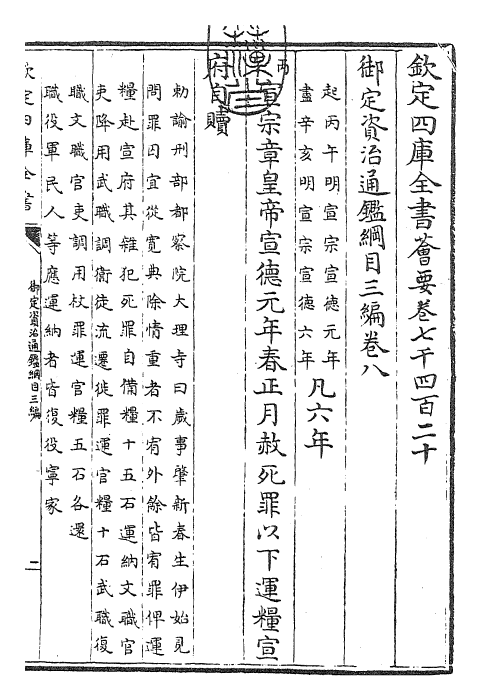 欽定四庫全書薈要卷七千四百二十
御定資治通鑑綱目三編卷八
起丙午明宣宗宣德元年
盡辛亥明宣宗宣德六年凡六年
丙
宣宗章皇帝宣德元年春正月赦死罪以下運糧宣
府自贖
勅諭刑部都察院大理寺曰歲事肇新春生伊始見
問罪囚宜從寛典除情重者不宥外餘皆宥罪俾運
糧赴宣府其雜犯死罪自備糧十五石運納文職官
吏降用武職調衞徒流遷徙罪運官糧十石武職復
職文職官吏調用杖罪運官糧五石各還
職役軍民人等應運納者皆復役寧家
欽定四庫全書
御定資治通鑑綱目三編